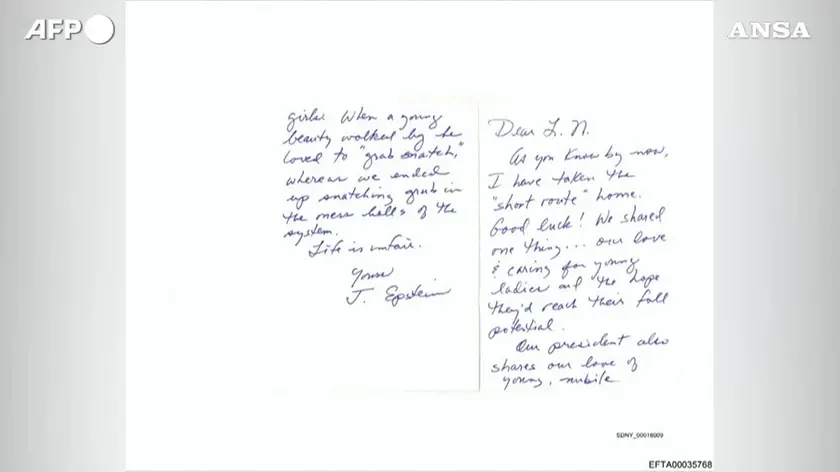 AFP
ANSA
Dear L. N.
As you know by now,
I have taken the
"short route" home.
Good luck! We shared
one thing... our love
& caring for young
ladies and the hope
they'd reach their full
potential.
Our president also
shares our love of
young, nubile
girls. When a young
beauty walked by he
loved to "grab snatch,"
whereas we ended
up snatching grub in
the mess halls of the
system.
Life is unfair.
Yours
J. Epstein
SDNY_00018009
EFTA00035768